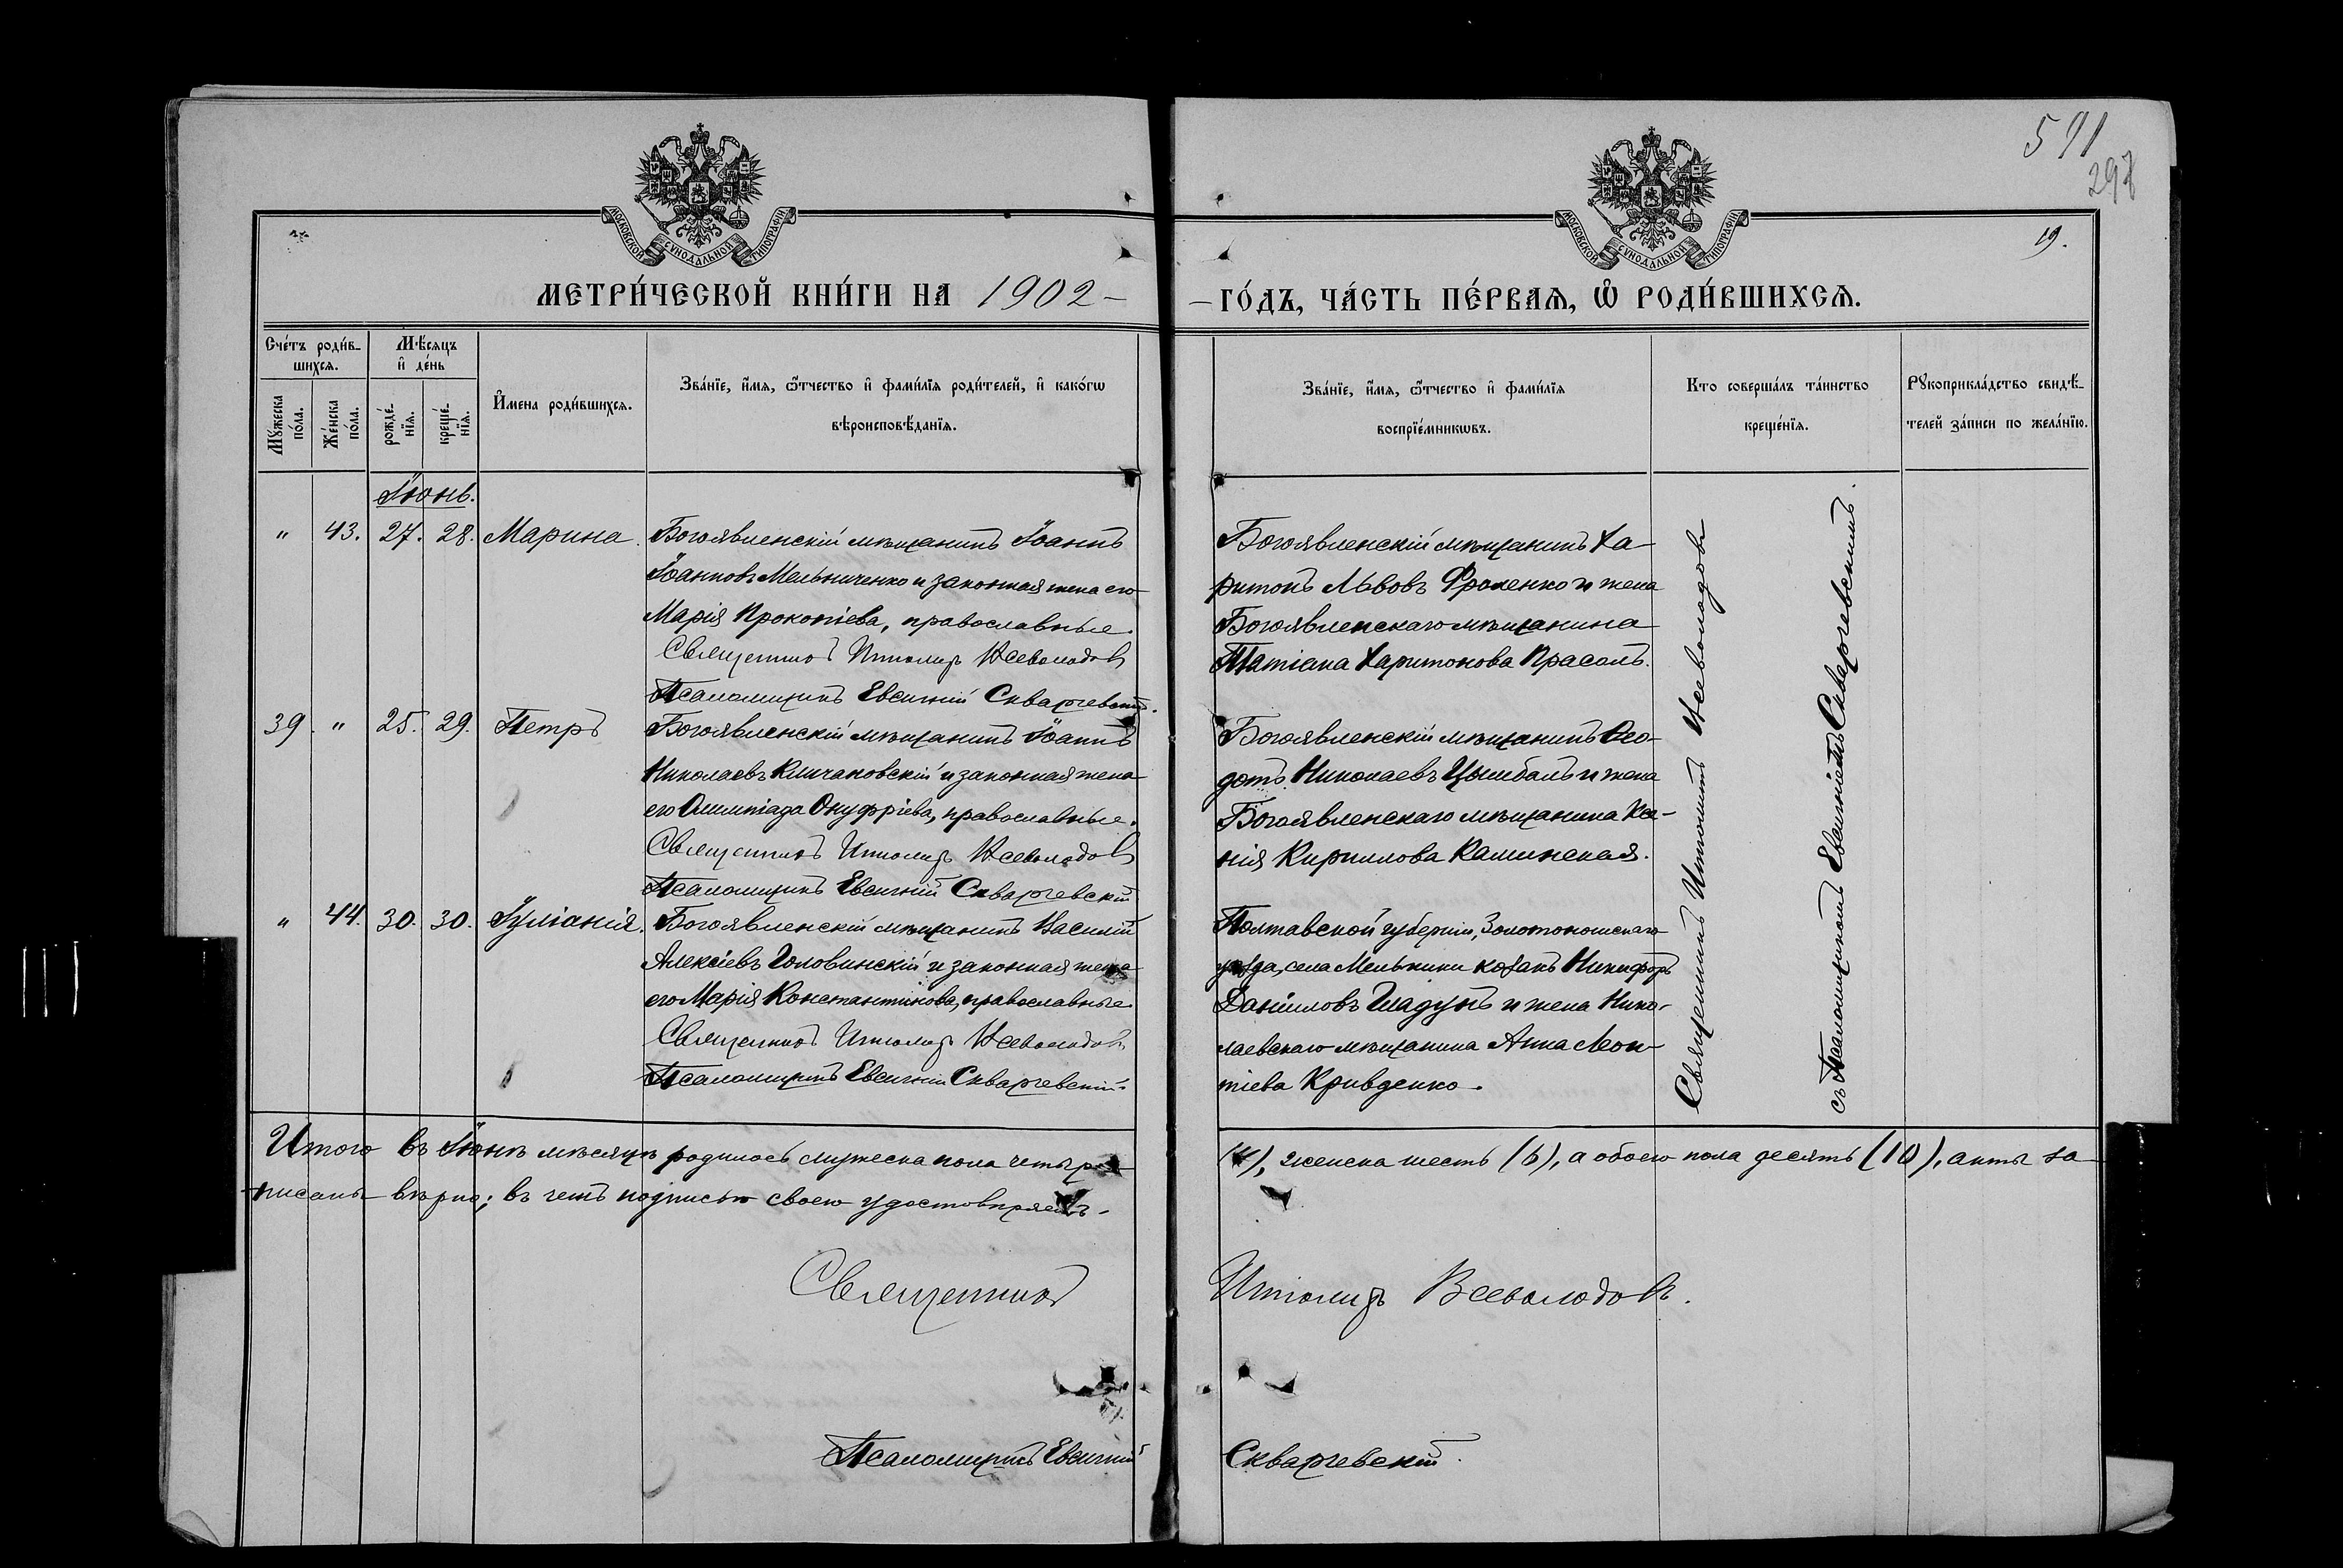 591
298
19.
МОСКОВСКОЙ СѴНОДАЛЬНОЙ ТИПОГРАФІИ
МОСКОВСКОЙ СѴНОДАЛЬНОЙ ТИПОГРАФІИ
МЕТРИ́ЧЕСКОЙ КНИ́ГИ НА 1902 -
- ГО́ДЪ, ЧА́СТЬ ПЕ́РВАѦ, Ѽ РОДИ́ВШИХСѦ.
Сче́тъ роди́в-
шихсѧ.
Мꙋ́жеска
по́ла.
Же́нска
по́ла.
Мѣ́сѧцъ
и҆ де́нь
рожде́-
нїѧ.
креще́-
нїѧ.
И҆мена роди́вшихсѧ.
Зва́нїе, и҆́мѧ, ѻ҆́тчество и҆ фами́лїѧ роди́телей, и҆ како́гѡ
вѣроисповѣ́данїѧ.
Зва́нїе, и҆́мѧ, ѻ҆́тчество и҆ фами́лїѧ
воспрїе́мникѡвъ.
Кто соверша́лъ та́инство
креще́нїѧ.
Рꙋкоприкла́дство свидѣ́-
телей за́писи по жела́нїю.
Іюнь.
" 43. 27. 28. Марина. Богоявленскій мѣщанинъ Іоаннъ
Іоанновъ Мельниченко и законная жена его
Марія Прокопіева, православные.
Священникъ Ипполитъ Всеволодовъ
Псаломщикъ Евгеній Скваржевскій.
Богоявленскій мѣщанинъ Ха-
ритонъ Львовъ Фроленко и жена
Богоявленскаго мѣщанина
Татіана Харитонова Прасолъ.
39. " 25. 29. Петръ Богоявленскій мѣщанинъ Іоаннъ
Николаевъ Кличановскій и законная жена
его Олимпіада Онуфріева, православные.
Священникъ Ипполитъ Всеволодовъ
Псаломщикъ Евгеній Скваржевскій
Богоявленскій мѣщанинъ Ѳео-
дотъ Николаевъ Цымбалъ и жена
Богоявленскаго мѣщанина Ксе-
нія Кириллова Каминская.
" 44. 30. 30. Іуліанія. Богоявленскій мѣщанинъ Василій
Алексіевъ Головинскій и законная жена
его Марія Константинова, православные
Священникъ Ипполитъ Всеволодовъ
Псаломщикъ Евгеній Скваржевскій.
Полтавской губерніи, Золотоношскаго
уѣзда, села Мельники козакъ Никифоръ
Даніиловъ Гладунъ и жена Нико-
лаевскаго мѣщанина Анна Леон-
тіева Кривденко.
Священникъ Ипполитъ Всеволодовъ
съ Псаломщикомъ Евгеніемъ Скваржевскимъ.
Итого въ Іюнѣ мѣсяцѣ родилось мужеска пола четыре
(4), женска шесть (6), а обоего пола десять (10), акты за-
писаны вѣрно; въ чемъ подписью своею удостовѣряемъ.
Священникъ Ипполитъ Всеволодовъ.
Псаломщикъ Евгеній Скваржевскій.